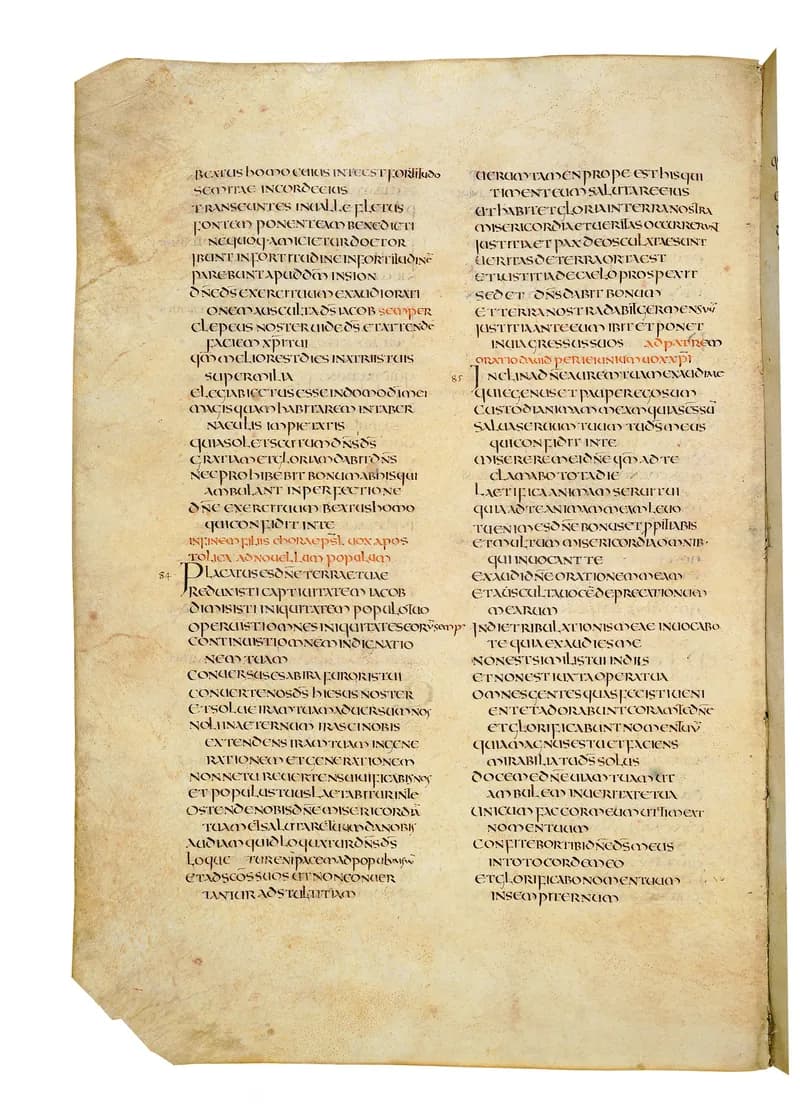 beatus homo cuius in te est fortitudo
semitae in corde eius
transeuntes in ualle fletus
fontem ponent eam benedicti
neq; amicietur doctor
ibunt in fortitudine in fortitudinē
parebunt apud dm̄ in sion
dn̄e ds̄ exercituum exaudi orati
onem ausculta ds̄ iacob semper
clepeus noster uide ds̄ et attende
faciem xp̄i tui
qm̄ melior est dies in atriis tuis
super milia
elegi abiectus esse in domo di mei
magis quam habitarem in taber
naculis impietatis
quia sol et scutum dn̄s ds̄
gratiam et gloriam dabit dn̄s
nec prohibebit bonum ab his qui
ambulant in perfectione
dn̄e exercituum beatus homo
qui confidit in te
in finem filiis chorae psl̄ uox apos
tolica ad nouellum populum
84 Placatus es dn̄e terrae tuae
reduxisti captiuitatem iacob
dimisisti iniquitatem populo tuo
operuisti omnes iniquitates eorū semp̄
continuisti omnem indignatio
nem tuam
conuersus es ab ira furoris tui
conuerte nos ds̄ hiesus noster
et solue iram tuam aduersum nos
noli in aeternum irasci nobis
extendens iram tuam in gene
rationem et generationem
nonne tu reuertens uiuificabis nos
et populus tuus laetabitur in te
ostende nobis dn̄e misericordiā
tuam et salutare tuum da nobis
audiam quid loquatur dn̄s ds̄
loque tur enī pacem ad populum suū
et ad sc̄os suos ut non conuer
tantur ad stultitiam
uerumtamen prope est his qui
timent eum salutare eius
ut habitet gloria in terra nostra
misericordia et ueritas occurrerunt
iustitia et pax deosculatae sunt
ueritas de terra orta est
et iustitia de caelo prospexit
sed et dn̄s dabit bonum
et terra nostra dabit germen suū
iustitia ante eum ibit et ponet
in uia gressus suos ad patrem
oratio dauid per ieiunium uox xp̄i
85 Inclina dn̄e aurem tuam exaudi me
quia egenus et pauper ego sum
custodi animam meam quia sc̄s sū
salua seruum tuum tu ds̄ meus
qui confidit in te
miserere mei dn̄e qm̄ ad te
clamabo tota die
laetifica animam serui tui
quia ad te animam meam leuo
tu enim es dn̄e bonus et ppitiabis
et multum misericordia omnib·
qui inuocant te
exaudi dn̄e orationem meam
et ausculta uocē deprecationum
mearum
In die tribulationis meae inuocabo
te quia exaudies me
non est similis tui in diis
et non est iuxta opera tua
omnes gentes quas fecisti ueni
ent et adorabunt coram te dn̄e
et glorificabunt nomen tuū
quia magnus es tu et faciens
mirabilia tu ds̄ solus
doce me dn̄e uiam tuam ut
ambulem in ueritate tua
unicum fac cor meum ut timeat
nomen tuum
confitebor tibi dn̄e ds̄ meus
in toto corde meo
et glorificabo nomen tuum
in sempiternum